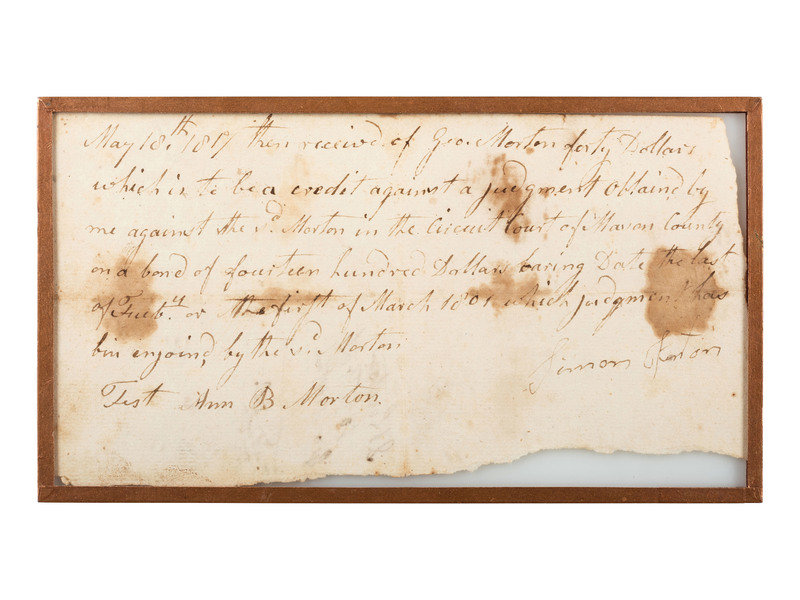 May 18th 1817 then receivd of Geo. Morton forty Dollars
which is to be a credit against a judgment obtaind by
me against the sd. Morton in the Circuit Court of Mason County
on a bond of fourteen hundred Dollars baring Date the last
of Feeby. or the first of March 1801 which judgment has
bin enjoind by the sd. Morton
Simon Kenton
Test Ann B Morton